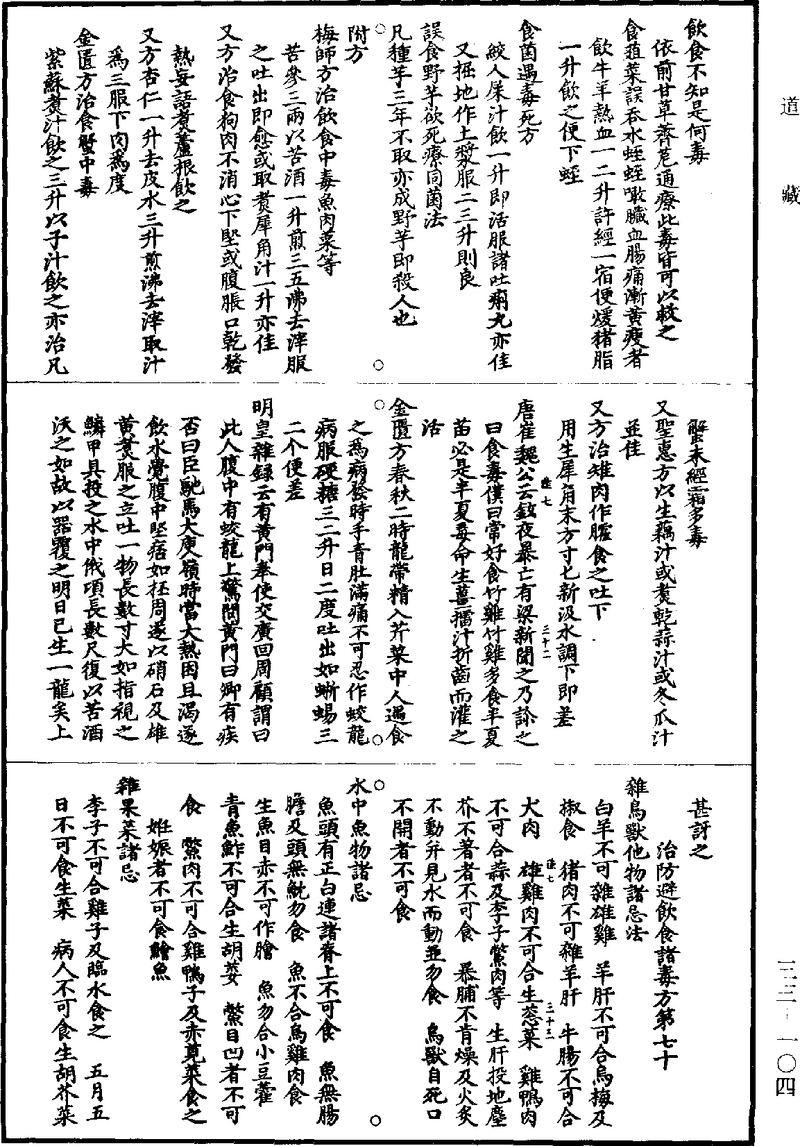 道藏
飲食不知是何毒
依前甘草薺苨通療此毒皆可以救之
食葅菜誤吞水蛭蛭噉臟血腸痛漸黃瘦者
飲牛羊熱血一二升許經一宿便煖猪脂
一升飲之便下蛭
食菌遇毒死方
絞人屎汁飲一升即活服諸吐痢丸亦佳
又掘地作土漿服二三升則良
誤食野芋欲死療同菌法
凡種芋三年不取亦成野芋即殺人也
附方
梅師方治飲食中毒魚肉菜等
苦參三兩以苦酒一升煎三五沸去滓服
之吐出即愈或取煑犀角汁一升亦佳
又方治食狗肉不消心下堅或腹脹口乾發
熱妄語煑蘆根飲之
又方杏仁一升去皮水三升煎沸去滓取汁
爲三服下肉爲度
金匱方治食蟹中毒
紫蘇煑汁飲之三升以子汁飲之亦治凡
蟹未經霜多毒
又聖惠方以生藕汁或煑乾蒜汁或冬瓜汁
並佳
又方治雉肉作臛食之吐下
用生犀角末方寸匕新汲水調下即差
唐崔魏公云鉉夜暴亡有梁新聞之乃診之
曰食毒僕曰常好食竹雞竹雞多食半夏
苗必是半夏毒命生薑擂汁折齒而灌之
活
金匱方春秋二時龍帶精入芹菜中人遇食
之爲病發時手青肚滿痛不可忍作蛟龍
病服硬糖三二升日二度吐出如蜥蜴三
二个便差
明皇雜錄云有黃門奉使交廣回周顧謂曰
此人腹中有蛟龍上驚問黃門曰卿有疾
否曰臣馳馬大庾嶺時當大熱困且渴遂
飲水覺腹中堅痞如抷周遂以硝石及雄
黃煑服之立吐一物長數寸大如指視之
鱗甲具投之水中俄頃長數尺復以苦酒
沃之如故以器覆之明日已生一龍矣上
甚訝之
治防避飲食諸毒方第七十
雜鳥獸他物諸忌法
白羊不可雜雄雞 羊肝不可合烏梅及
椒食 猪肉不可雜羊肝 牛腸不可合
犬肉 雄雞肉不可合生葱菜 雞鴨肉
不可合蒜及李子鱉肉等 生肝投地塵
芥不著者不可食 暴脯不肯燥及火炙
不動并見水而動並勿食 鳥獸自死口
不開者不可食
水中魚物諸忌
魚頭有正白連諸脊上不可食 魚無腸
膽及頭無魫勿食 魚不合烏雞肉食
生魚目赤不可作膾 魚勿合小豆藿
青魚鮓不可合生胡荽 鱉目凹者不可
食 鱉肉不可合雞鴨子及赤莧菜食之
姙娠者不可食鱠魚
雜果菜諸忌
李子不可合雞子及臨水食之 五月五
日不可食生菜 病人不可食生胡芥菜
三三—一〇四